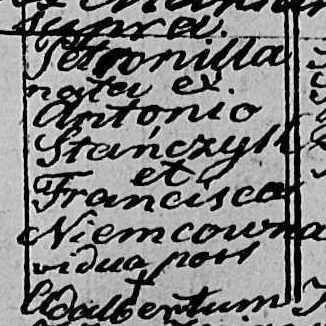 supra.
Petronilla
nata ex.
Antonio
Stańczyk
et
Francisca
Niemcowna
vidua post
† Adalbertum